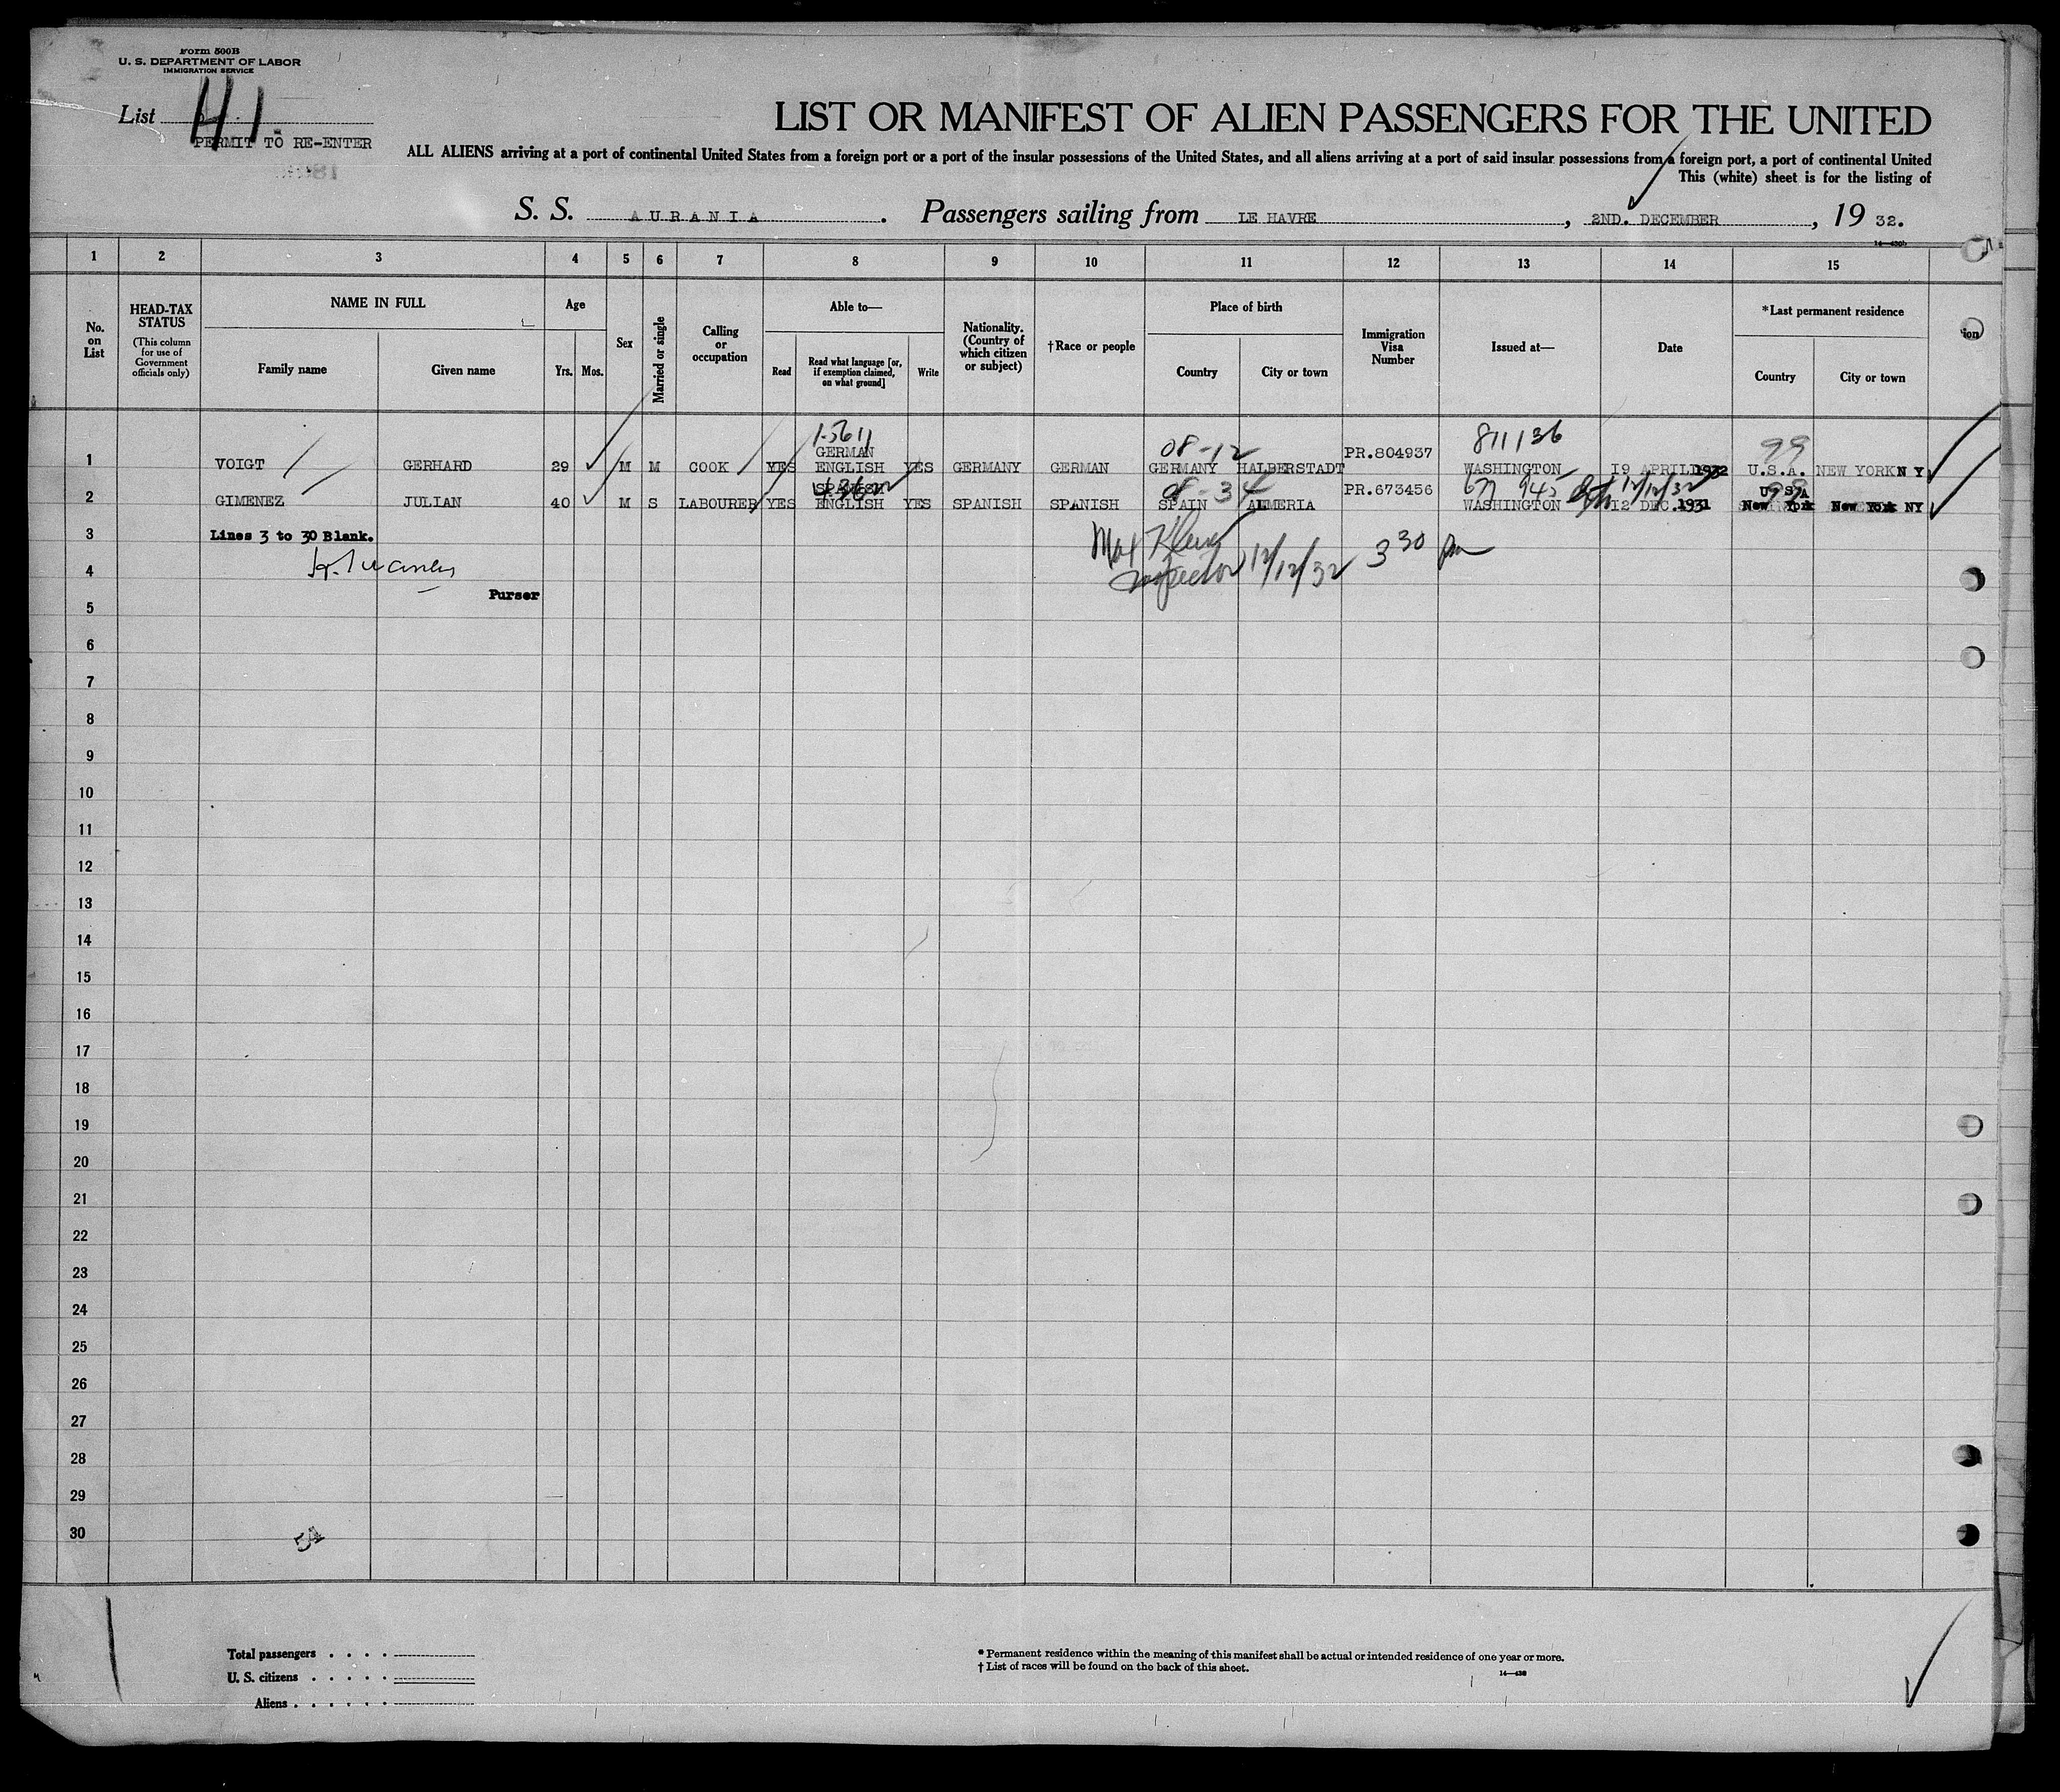 Form 500B
U. S. DEPARTMENT OF LABOR
IMMIGRATION SERVICE
List 41
PERMIT TO RE-ENTER
LIST OR MANIFEST OF ALIEN PASSENGERS FOR THE UNITED
ALL ALIENS arriving at a port of continental United States from a foreign port or a port of the insular possessions of the United States, and all aliens arriving at a port of said insular possessions from a foreign port, a port of continental United
This (white) sheet is for the listing of
S. S. AURANIA. Passengers sailing from LE HAVRE, 2ND. DECEMBER, 19 32.
14—430b
1 2 3 4 5 6 7 8 9 10 11 12 13 14 15
No. on List
HEAD-TAX STATUS
(This column for use of Government officials only)
NAME IN FULL
Family name
Given name
Age
Yrs.
Mos.
Sex
Married or single
Calling or occupation
Able to—
Read
Read what language [or, if exemption claimed, on what ground]
Write
Nationality. (Country of which citizen or subject)
†Race or people
Place of birth
Country
City or town
Immigration Visa Number
Issued at—
Date
*Last permanent residence
Country
City or town
ion
1-5611 08-12 811136 99
1 VOIGT GERHARD 29 M M COOK YES GERMAN ENGLISH YES GERMANY GERMAN GERMANY HALBERSTADT PR.804937 WASHINGTON 19 APRIL 1932 U.S.A. NEW YORK N Y
08-34 677 945 12/12/32 99
2 GIMENEZ JULIAN 40 M S LABOURER YES SPANISH ENGLISH YES SPANISH SPANISH SPAIN ALMERIA PR.673456 WASHINGTON 12 DEC. 1931 U S A New York New York NY
3 Lines 3 to 30 Blank.
Max
4 Inspector 12/12/32 3 30 pm
Purser
5
6
7
8
9
10
11
12
13
14
15
16
17
18
19
20
21
22
23
24
25
26
27
28
29
30
54
Total passengers
U. S. citizens
Aliens
* Permanent residence within the meaning of this manifest shall be actual or intended residence of one year or more.
† List of races will be found on the back of this sheet.
14—430